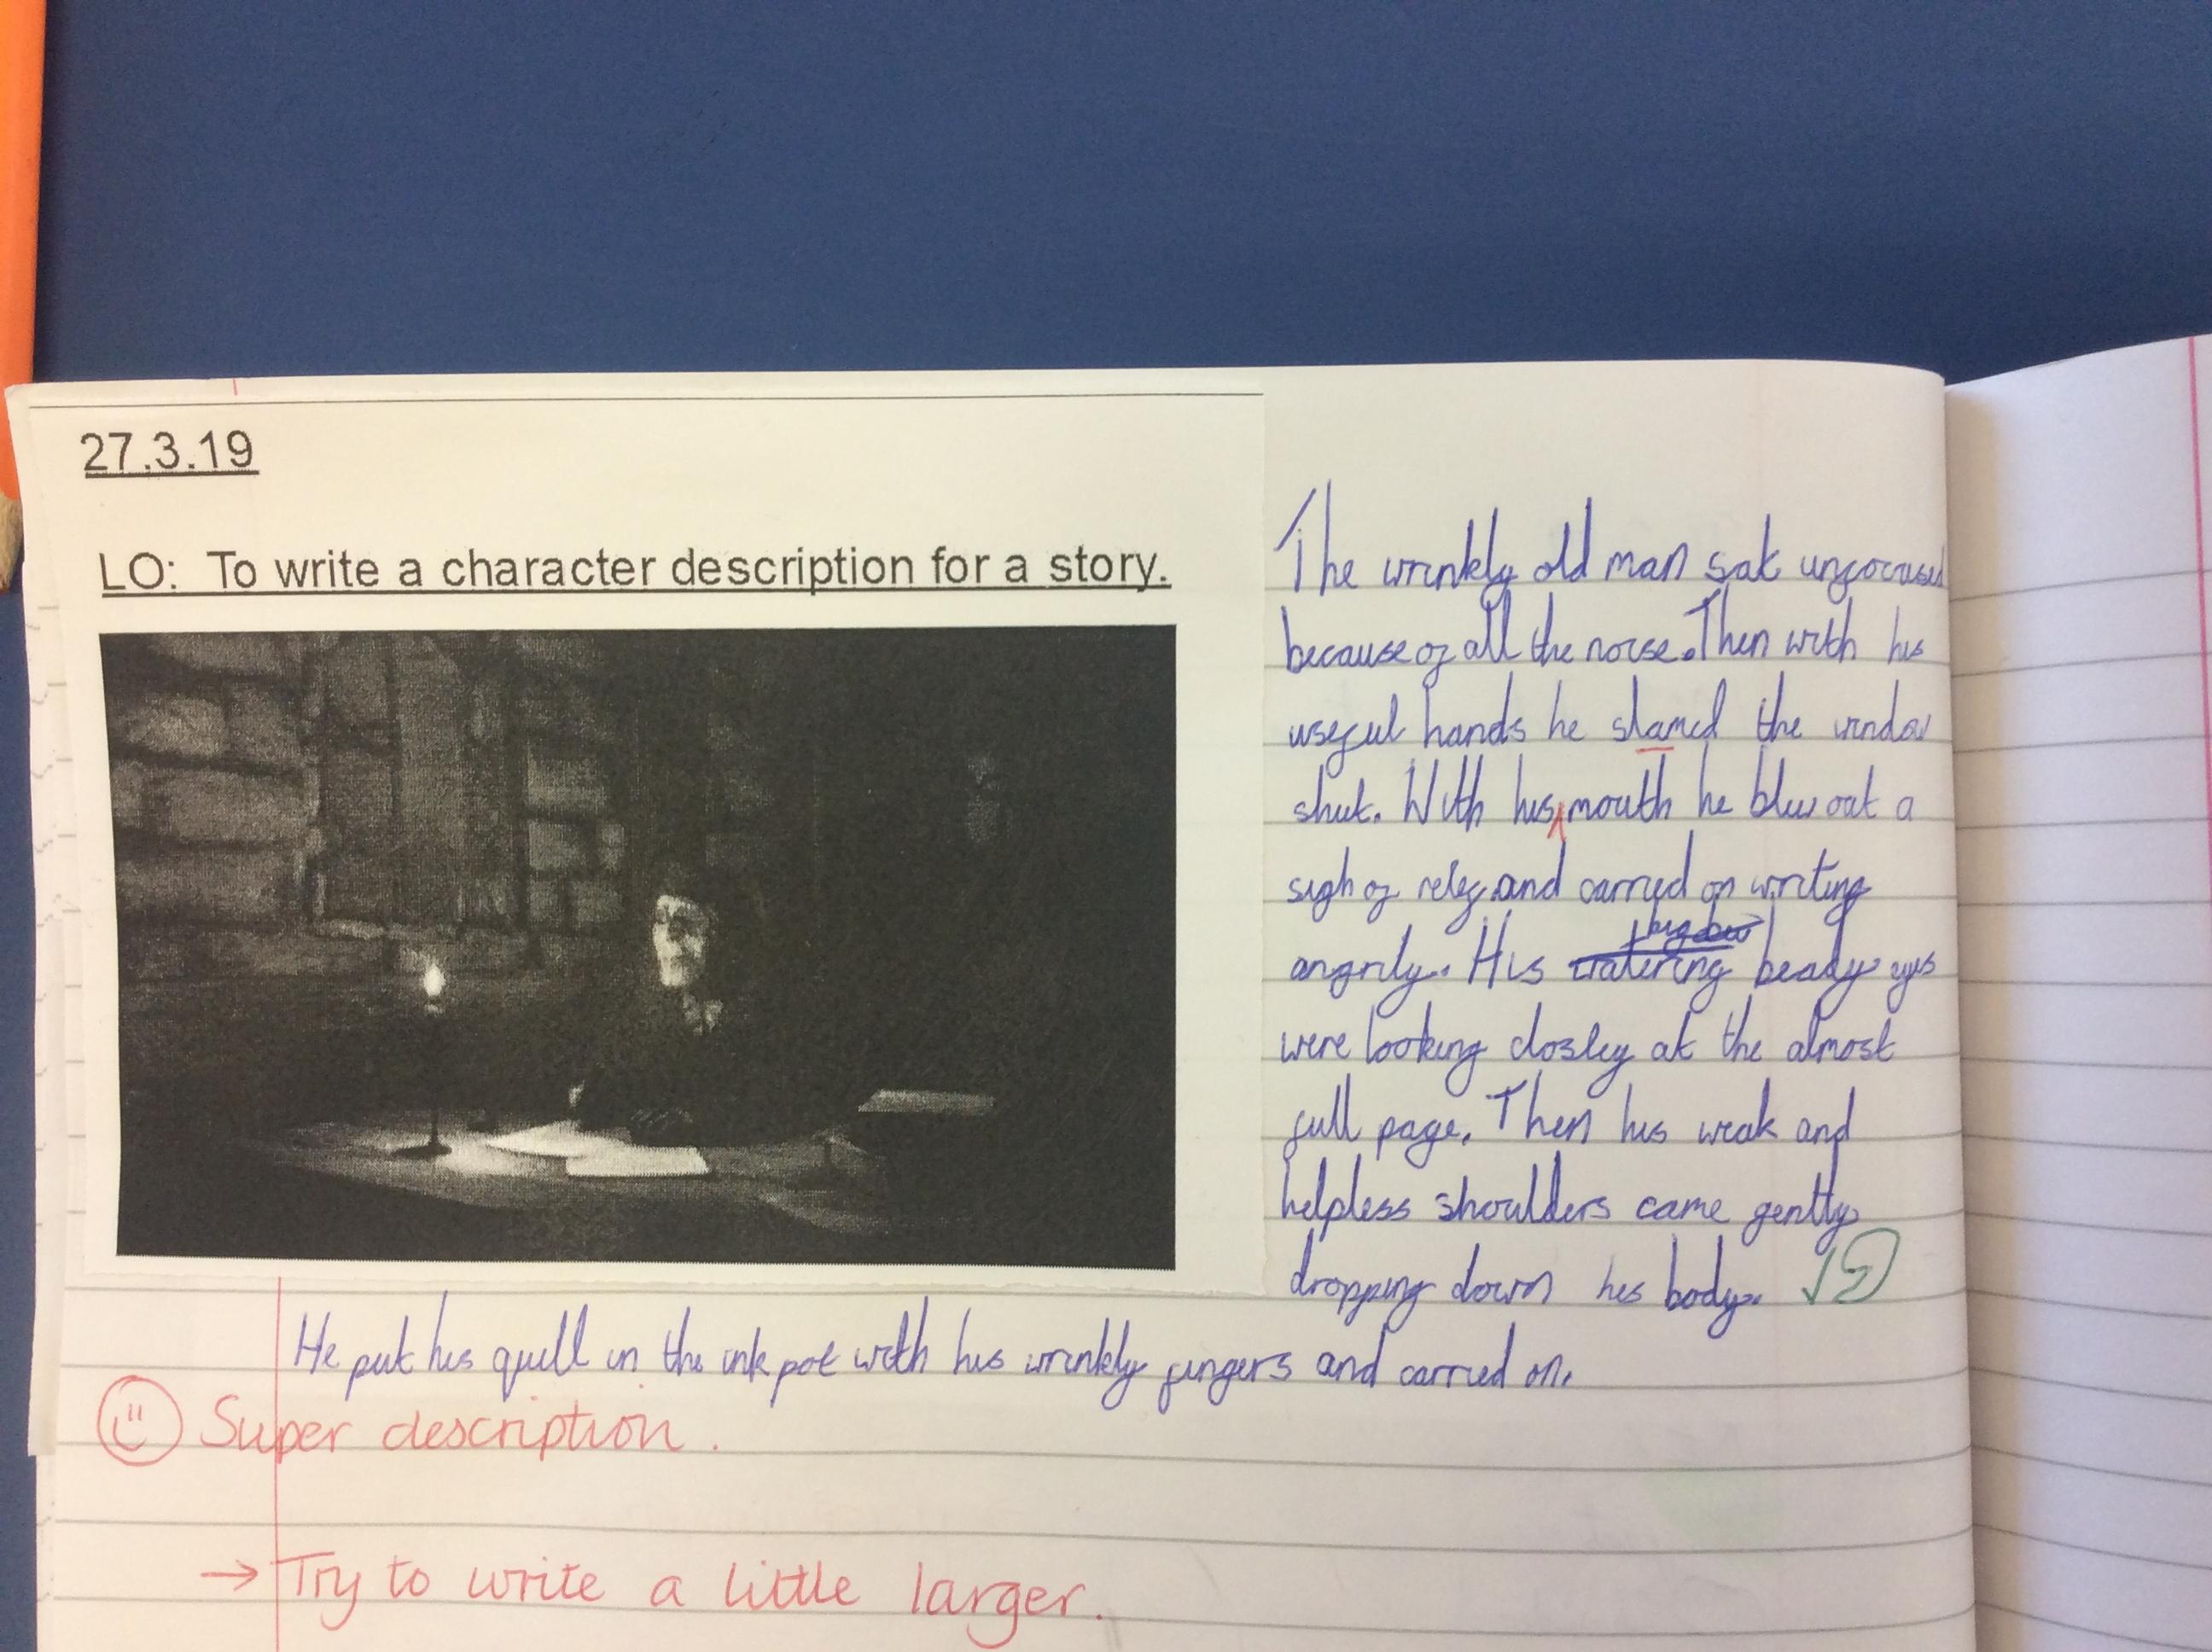 27.3.19
LO: To write a character description for a story.
The wrinkly old man sat unfocused
because of all the noise. Then with his
useful hands he slamed the window
shut. With his mouth he blew out a
sigh of relef and carried on writing
angrily. His beady eyes
were looking closley at the almost
full page. Then his weak and
helpless shoulders came gently
dropping down his body.
He put his quill in the ink pot with his wrinkly fingers and carried on.
Super description.
→ Try to write a little larger.